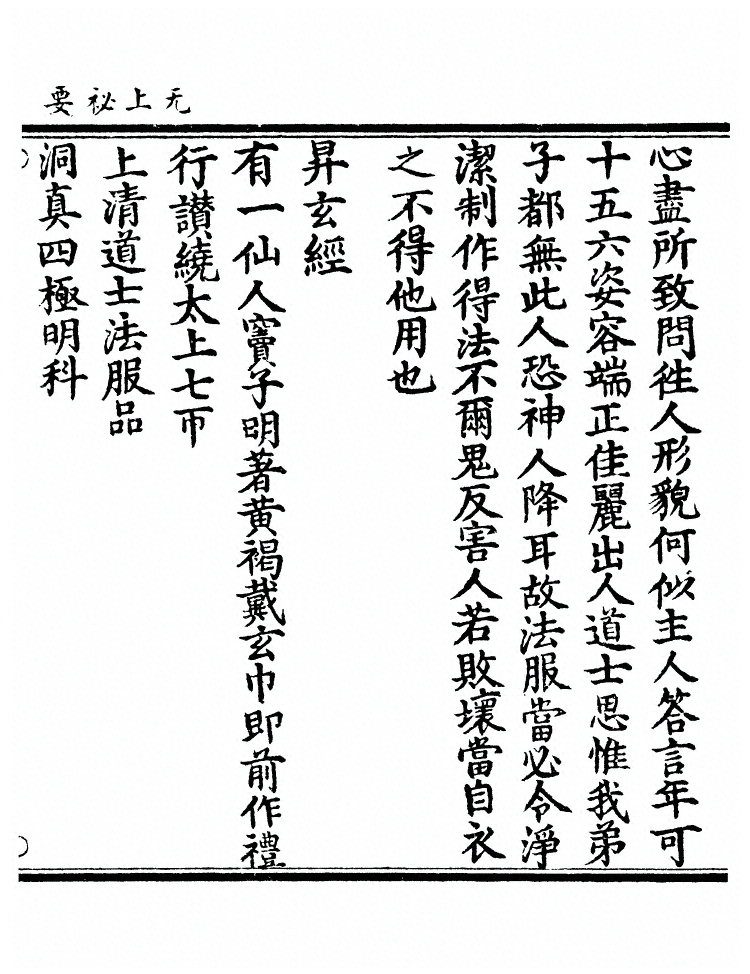 无上祕要
心盡所致問徃人形貌何似主人答言年可
十五六姿容端正佳麗出人道士思惟我弟
子都無此人恐神人降耳故法服當必令淨
潔制作得法不爾鬼反害人若敗壞當自衣
之不得他用也
昇玄經
有一仙人竇子明著黄褐戴玄巾即前作禮
行讃繞太上七帀
上清道士法服品
洞真四極明科